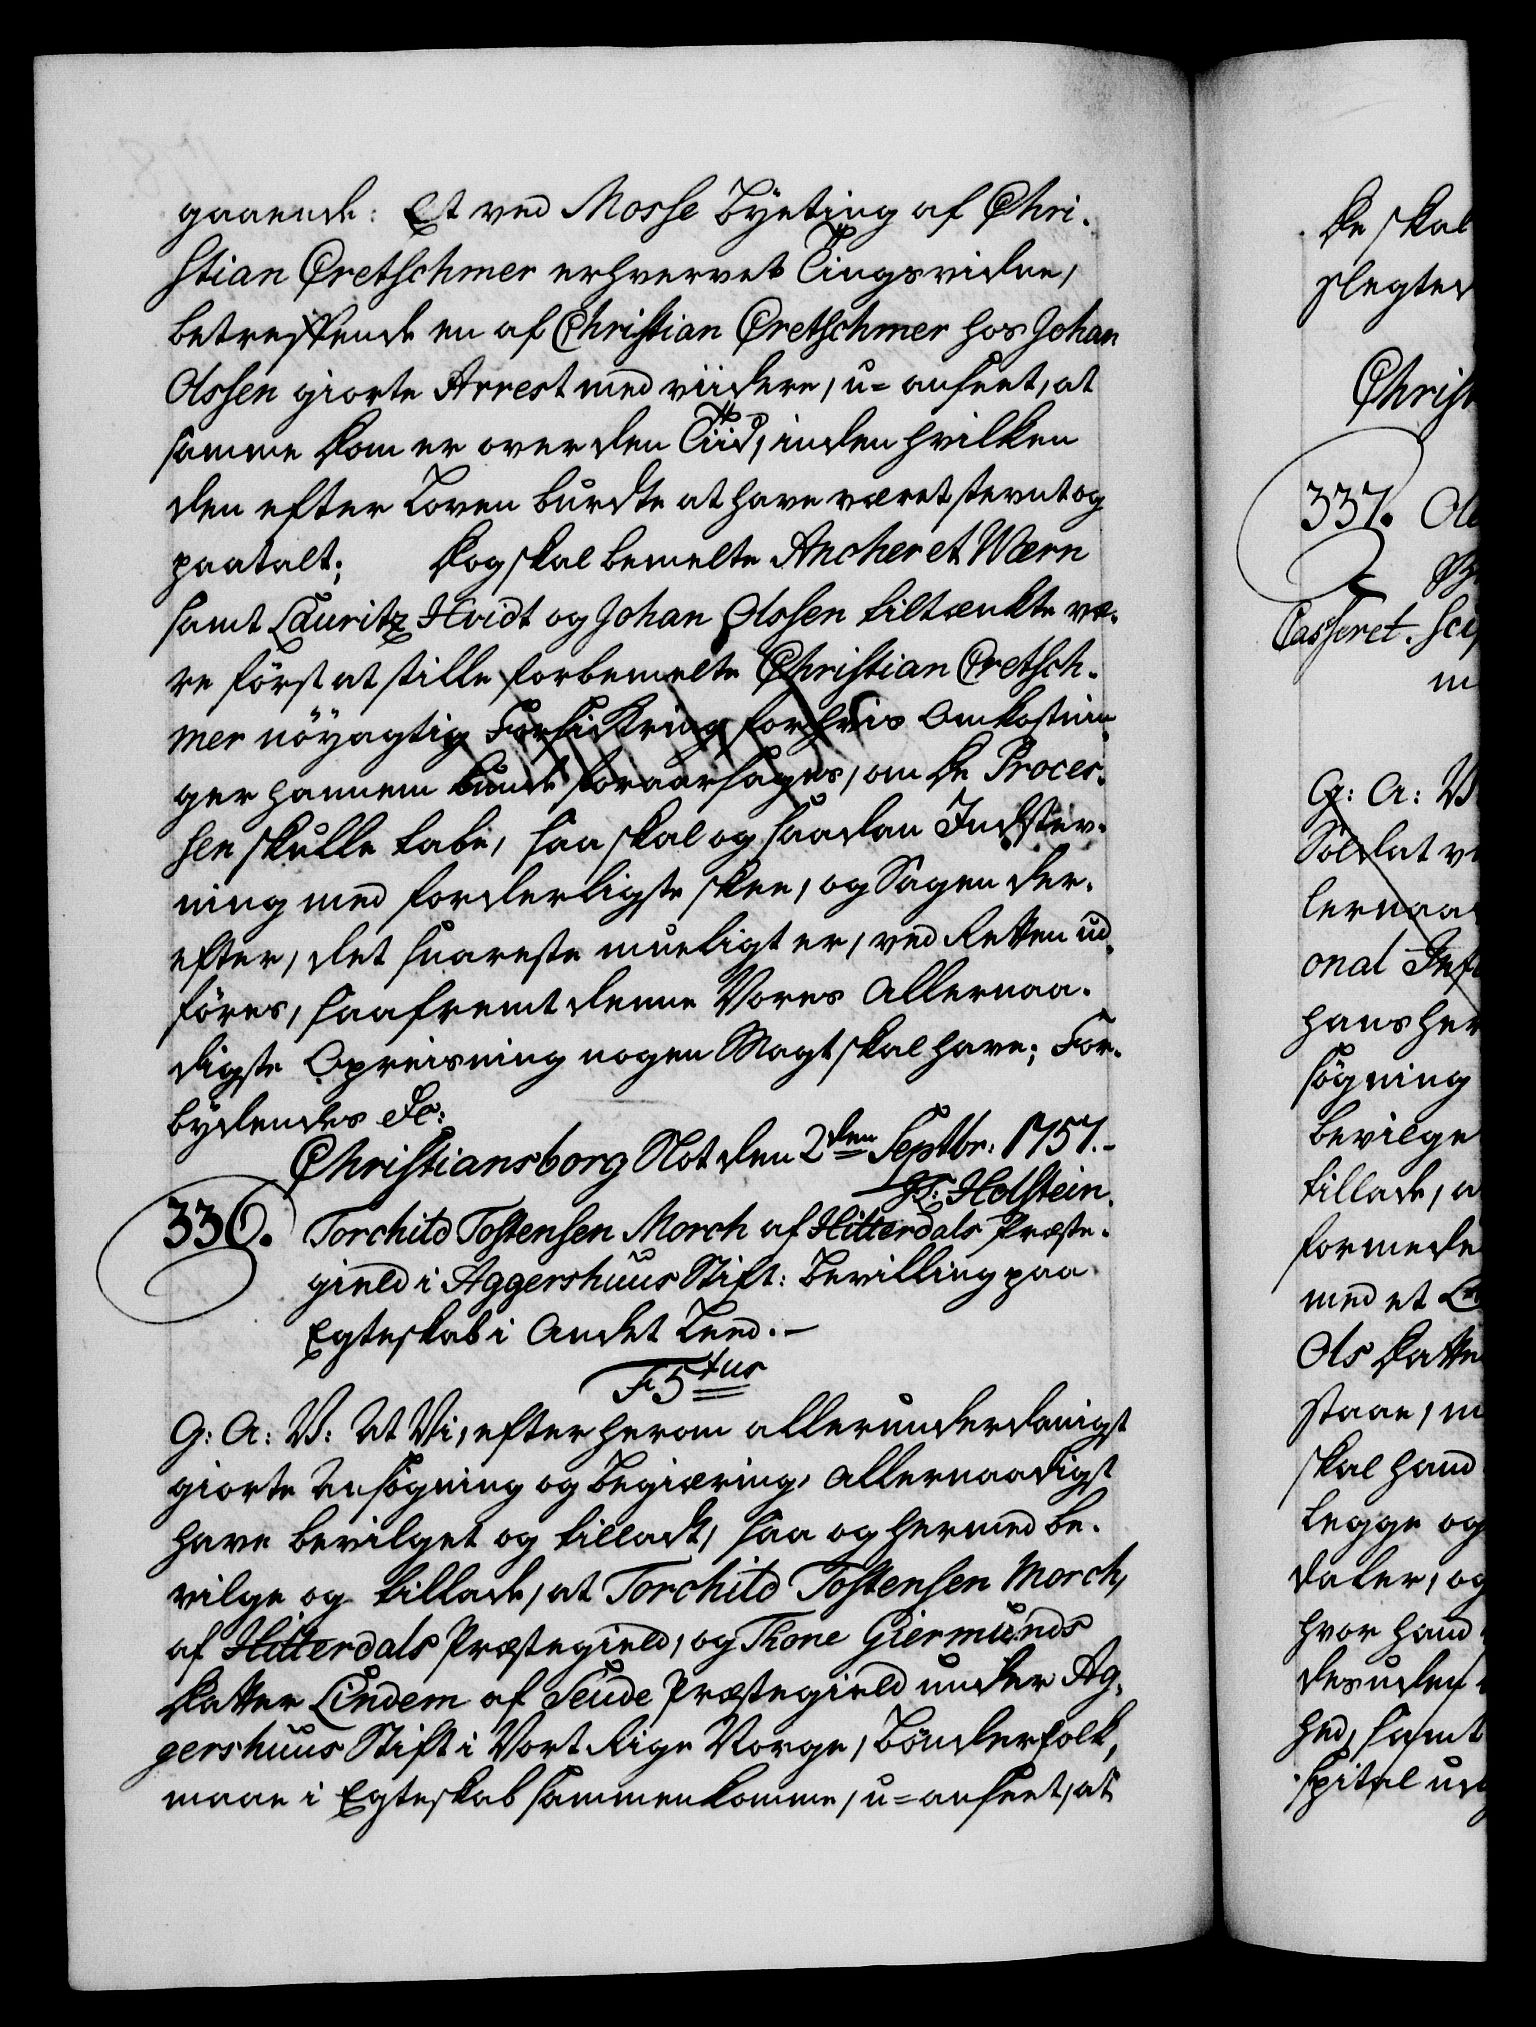 gaaende: Et ved Mosse Byeting af Chri-
stian Cretschmer erhvervet Tingsvidne,
betreffende en af Christian Cretschmer hos Johan
Olssen giorte Arrest med viidere, u-anseet, at
samme Dom er over den Tiid, inden hvilken
den efter Loven burdte at have været stevnt og
paatalt; Dog skal bemelte Ancher et Wærn
samt Lauritz Hvidt og Johan Olssen tiltænkte væ-
re først at stille forbemelte Christian Cretsch-
mer nöyagtig Forsickring for hvis Omkostnin-
ger hannem kunde foraarsages, om de Proces-
sen skulle tabe, saa skal og saadan Indstev-
ning med forderligste skee, og Sagen der-
efter, det snareste mueligt er, ved Retten ud-
föres, saafremt denne Vores Allernaa-
digste Opreisning nogen Magt skal have; For-
bydendes &c:
Christiansborg Slot den 2den Septbr: 1757.-
JL: Holstein.
336. Torchild Tostensen Morch af Hitterdals Præste-
gield i Aggershuus Stift: Bevilling paa
Egteskab i Andet Leed.-
F 5tus
G: A: V: At Vi, efter herom allerunderdanigst
giorte Ansögning og Begiæring, allernaadigst
have bevilget og tilladt, saa og hermed be-
vilge og tillade, at Torchild Tostensen Morch,
af Hitterdals Præstegield, og Thone Giermunds
Datter Lindem af Seude Præstegield under Ag-
gershuus Stift i Vort Rige Norge, Bönderfolk,
maae i Egteskab sammenkomme, u-anseet, at
De skal
slegted
Christ
337. Ole
Casseret.
G: A: V
Soldat
onal Inf
hans her
søgning
bevilge
tillade, a
formede
med et
Ols Datte
staae, m
skal hand
legge og
daler, og
hvor hand
desuden
hed, samt
spital ud